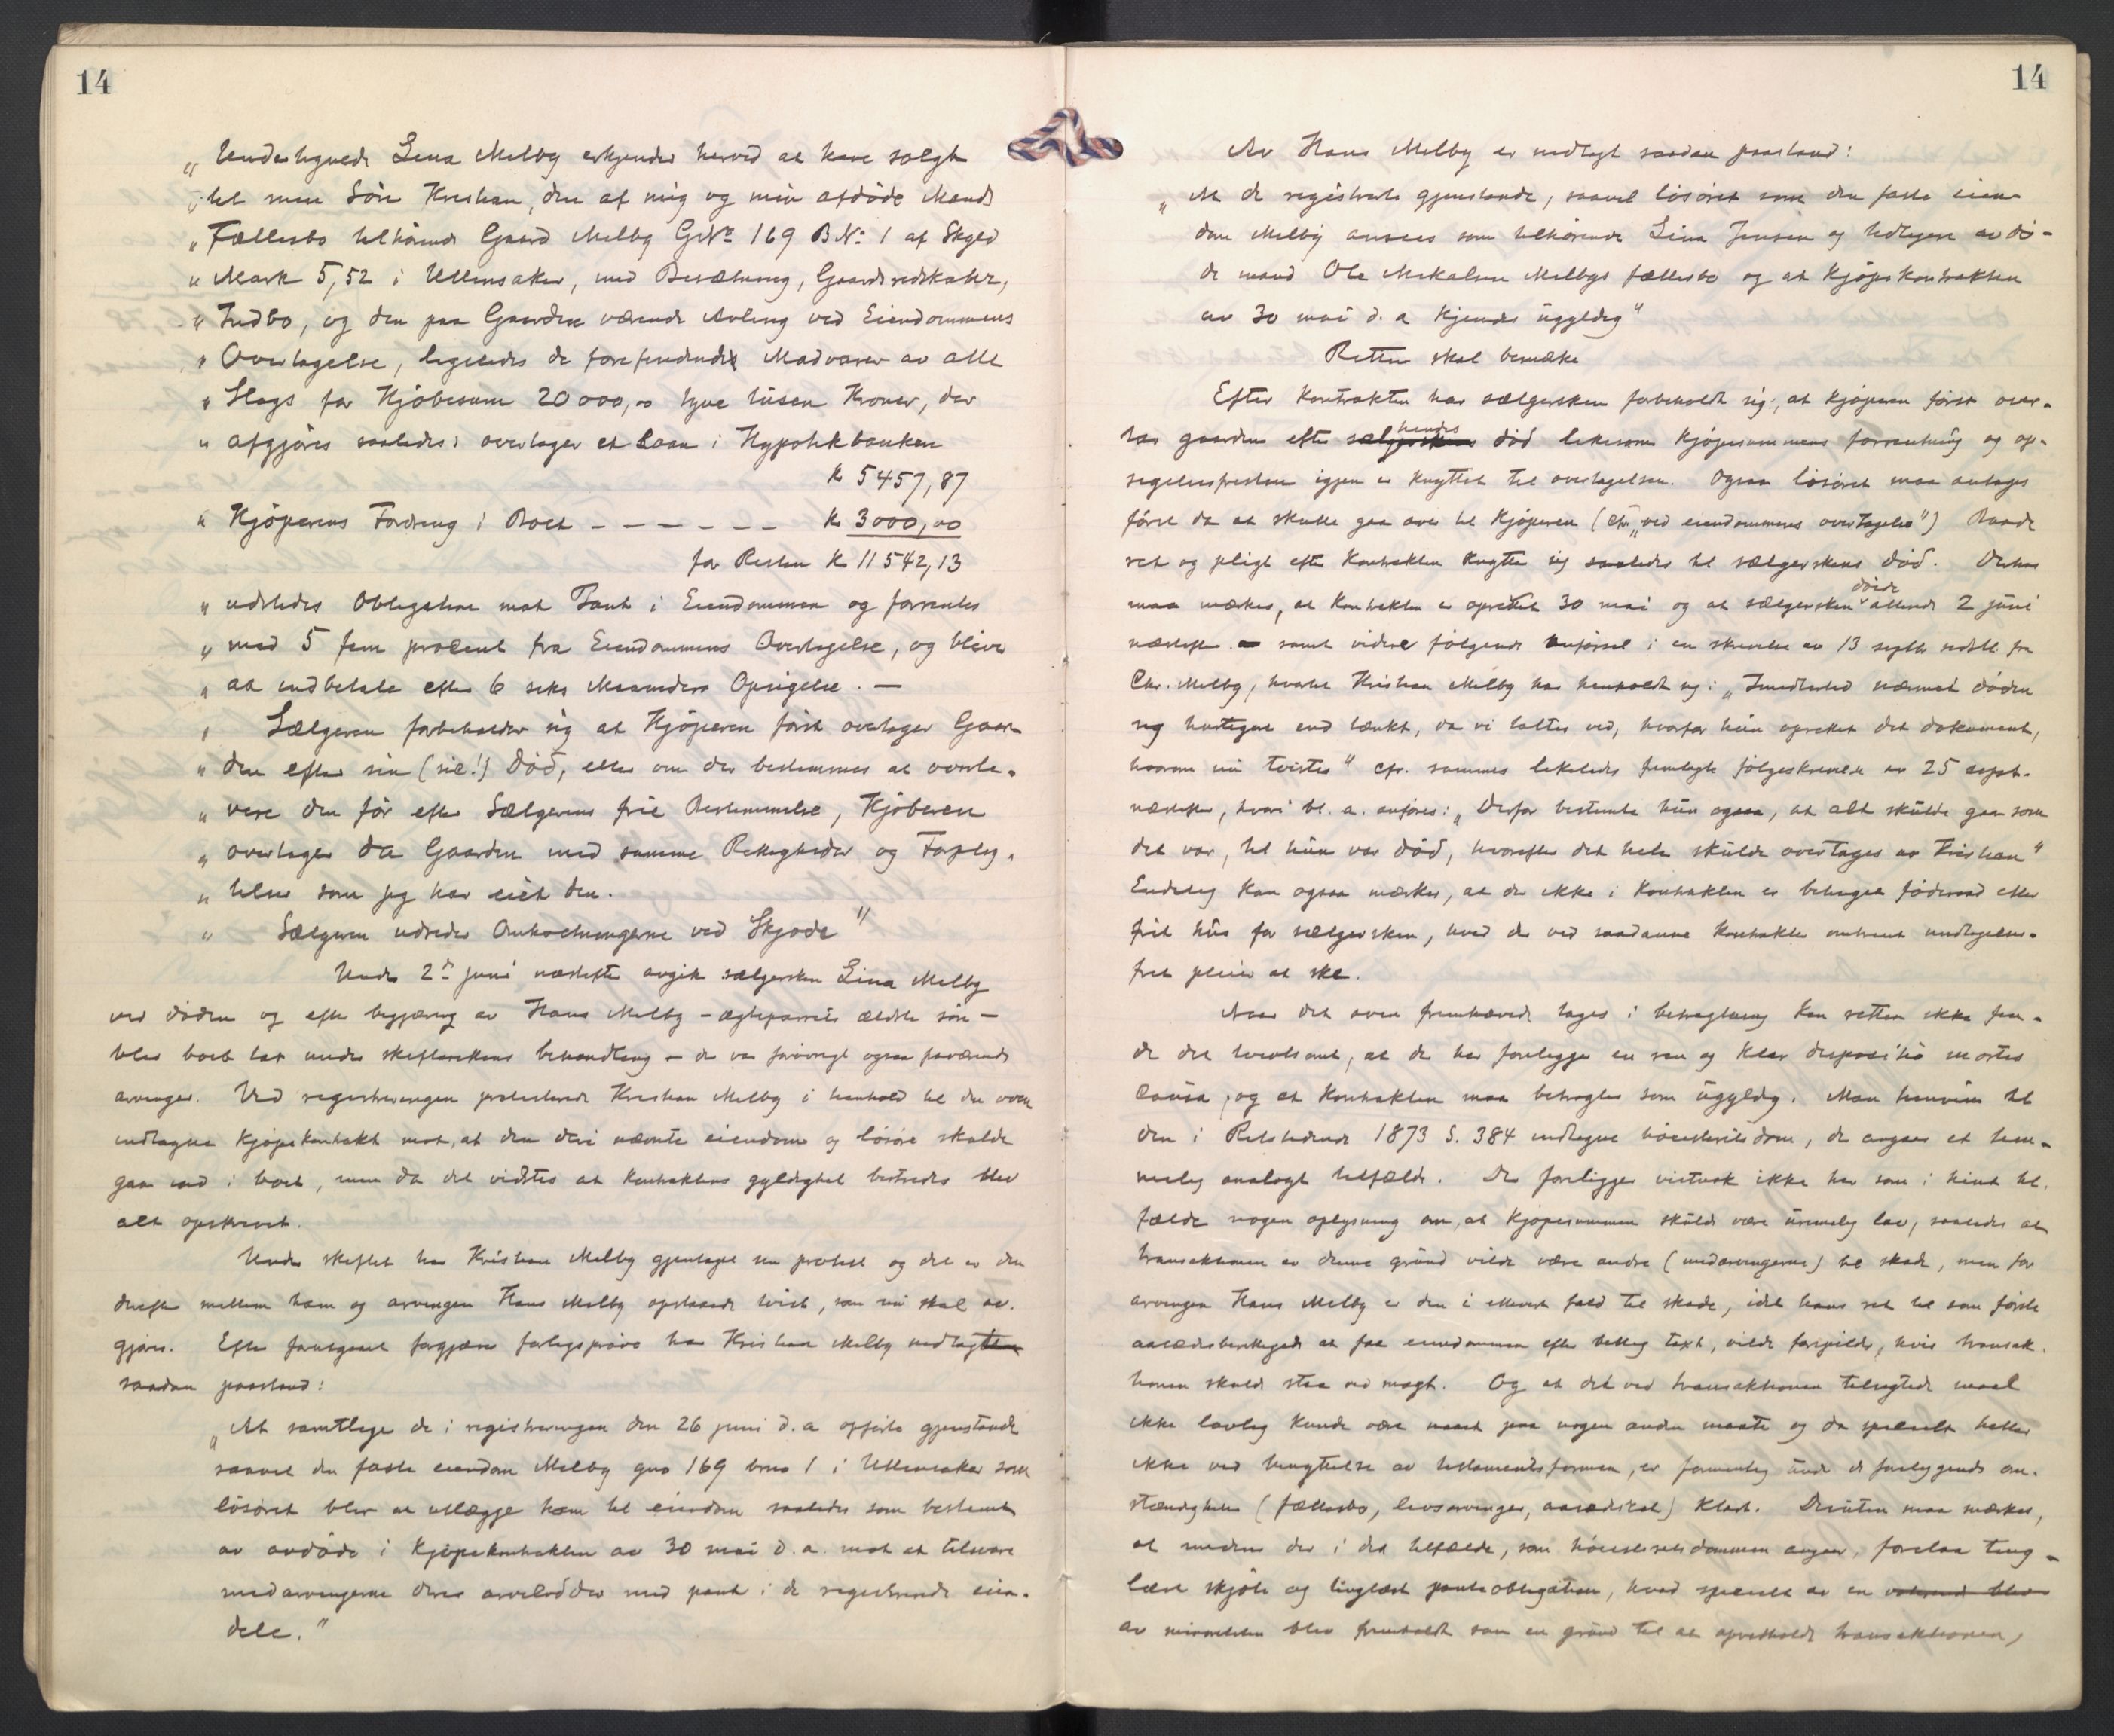 14
„ Undertegnede Lina Melby erkjender herved at have solgt
„ til min Sön Kristian, den af mig og min afdöde Mands
„ Fællesbo tilhörende Gaard Melby GNo 169 BNo 1 af Skyld
„ Mark 5,52 i Ullensaker, med Besætning, Gaardsredskaber,
„ Indbo, og den paa Gaarden værende Avling ved Eiendommens
„ Overtagelse, ligeledes de forefindende Madvarer av alle
„ Slags for Kjöbesum 20000,00 tyve tusen Kroner, der
„ afgjöres saaledes: overtager et Laan i Hypothekbanken
kr 5457,87
„ Kjöperens Fordring i Boet – – – – – – kr 3000,00
for Resten kr 11542,13
„ udstedes Obligation mot Pant i Eiendommen og forrentes
„ med 5 fem procent fra Eiendommens Overtagelse, og bliver
„ at indbetale efter 6 seks Maaneders Opsigelse. —
„ Sælgeren forbeholder sig at Kjöperen först overtager Gaar-
„ den efter sin (sic!) Död, eller om der bestemmes at overle-
„ vere den för efter Sælgerens frie Bestemmelse, Kjöberen
„ overtager da Gaarden med samme Rettigheder og Forplig-
„ telser som jeg har eiet den.
„ Sælgeren udreder Omkostningerne ved Skjöde"
Under 2den juni næstefter avgik sælgersken Lina Melby
ved döden og efter begjæring av Hans Melby – ægteparrets ældste sön –
blev boet tat under skifterettens behandling – der var forövrigt ogsaa fraværende
arvinger. Ved registreringen protesterede Kristian Melby i henhold til den oven
indtagne kjöpekontrakt mot, at den deri nævnte eiendom og lösöre skulde
gaa ind i boet, men da det vidstes at kontraktens gyldighet bestredes blev
alt opskrevet.
Under skiftet har Kristian Melby gjentaget sin protest og det er den
derefter mellem ham og arvingen Hans Melby opstaaede tvist, som nu skal av-
gjöres. Efter forutgaaet forgjæves forligspröve har Kristian Melby nedlagt
saadan paastand:
„At samtlige de i registreringen den 26 juni d.a. opförte gjenstande
saavel den faste eiendom Melby gno 169 bno 1 i Ullensaker som
lösöret blir at utlægge ham til eiendom saaledes som bestemt
av avdöde i kjöpekontrakten av 30 mai d.a. mot at tilsvare
medarvingerne deres arvelodder med pant i de registrerede eien-
dele."
14
Av Hans Melby er nedlagt saadan paastand:
„At de registrerte gjenstande, saavel lösöret som den faste eien-
dom Melby ansees som tilhörende Lina Jensen og tidligere avdö-
de mand Ole Mikalsen Melbys fællesbo og at kjöpekontrakten
av 30 mai d.a kjendes ugyldig"
Retten skal bemerke
Efter kontrakten har sælgersken forbeholdt sig, at kjöperen först over-
tar gaarden efter sælgerskens hendes död likesom kjöpesummens forrentning og op-
sigelsesfristen igjen er knyttet til overtagelsen. Ogsaa lösöret maa antages
först da at skulle gaa over til kjöperen (cfr. „ved eiendommens overtagelse") Baade
ret og pligt efter kontrakten knytter sig saaledes til sælgerskens död. Derhos
maa merkes, at kontrakten er oprettet 30 mai og at sælgersken döde allerede 2 juni
næstefter – samt videre fölgende anförsel i en skrivelse av 13 septbr sidstl. fra
Chr. Melby, hvortil Kristian Melby har henholdt sig: „Imidlertid nærmet döden
sig hurtigere end tænkt, da vi taltes ved, hvorfor hun oprettet det dokument,
hvorom nu tvistes" cfr. sammes likeledes fremlagte fölgeskrivelse av 25 sept.
næstefter, hvori bl. a. anföres: „Derfor bestemte hun ogsaa, at alt skulde gaa som
det var, til hun var död, hvorefter det hele skulde overtages av Kristian"
Endelig kan ogsaa merkes, at der ikke i kontrakten er betinget föderaad eller
frit hus for sælgersken, hvad der ved saadanne kontrakter omtrent undtagelses-
frit pleier at ske.
Naar det oven fremhævede tages i betragtning kan retten ikke fin-
de det tvilsomt, at der her foreligger en ren og klar dispositio mortis
causa, og at kontrakten maa betragtes som ugyldig. Man henviser til
den i Retstidende 1873 S. 384 indtagne höiesteretsdom, der angaar et tem-
melig analogt tilfælde. Der foreligger vistnok ikke her som i hint til-
fælde nogen oplysning om, at kjöpesummen skulde være urimelig lav, saaledes at
transaktionen av denne grund vilde være andre (medarvingerne) til skade, men for
arvingen Hans Melby er den i ethvert fald til skade, idet hans ret til som förste
aasædesberettigede at faa eiendommen efter billig taxt, vilde forspildes, hvis transak-
tionen skulde staa ved magt. Og at det ved transaktionen tilsigtede maal
ikke lovlig kunde være naaet paa nogen anden maate og da specielt heller
ikke ved benyttelse av testamentsformen, er formentlig under de foreliggende om-
stændigheter (fællesbo, livsarvinger, aasædesret) klart. Desuten maa merkes,
at medens der i det tilfælde, som höiesteretsdommen angaar, forelaa ting-
læst skjöte og tinglæst panteobligation, hvad specielt av en voterende blev
av minoriteten blev fremholdt som en grund til at opretholde transaktionen,